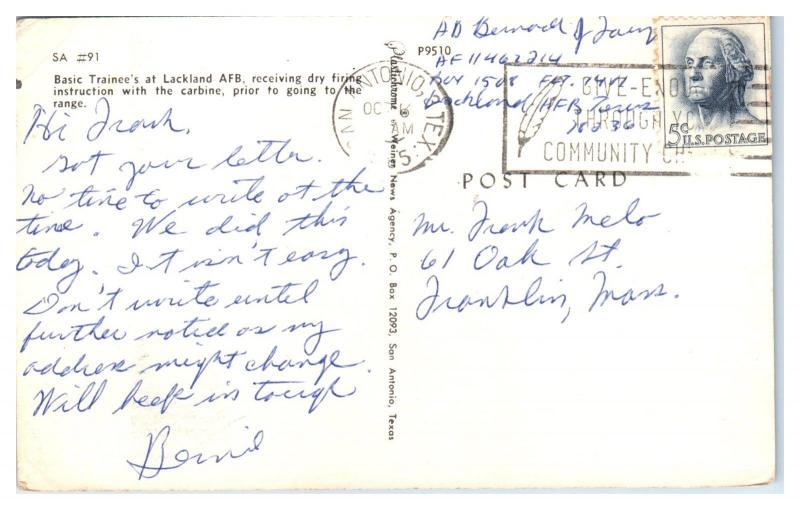 SA #91
Basic Trainee's at Lackland AFB, receiving dry firing
instruction with the carbine, prior to going to the
range.
Hi Frank,
Got your letter.
No time to write at the
time. We did this
today. It isn't easy.
Don't write until
further noticd as my
address might change.
Will keep in tough
Bernie
Plastichrome
Weiner News Agency, P. O. Box 12092, San Antonio, Texas
P9510
AB Bernard J
AF 11462214
Box 1508
Lackland AFB Texas
78236
SAN ANTONIO, TEX
OCT
AM
GIVE
THROUGH YO
COMMUNITY CH
5c U.S. POSTAGE
POST CARD
Mr. Frank Melo
61 Oak St.
Franklin, Mass.